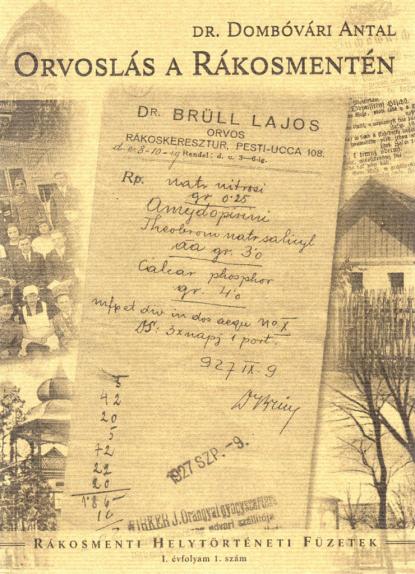 DR. DOMBÓVÁRI ANTAL
ORVOSLÁS A RÁKOSMENTÉN
DR. BRÜLL LAJOS
ORVOS
RÁKOSKERESZTUR, PESTI-UCCA 108.
d. e. 8-10-ig Rendel: d. u. 3-6-ig.
Rp. natr nitrosi
gr 0.25
Amydopirini
Theobrom natr salicyl
aa gr. 3.0
Calcar phosphor
gr. 4.0
mfp et div in dos aequ No X
DS. 3x napj 1 port.
927 IX. 9
Dr Brüll
5
42
20
5
72
22
20
186
10
1927 SZP. -9.
J. Őrangyal gyógyszertára
udvari szállítója
RÁKOSMENTI HELYTÖRTÉNETI FÜZETEK
I. évfolyam 1. szám